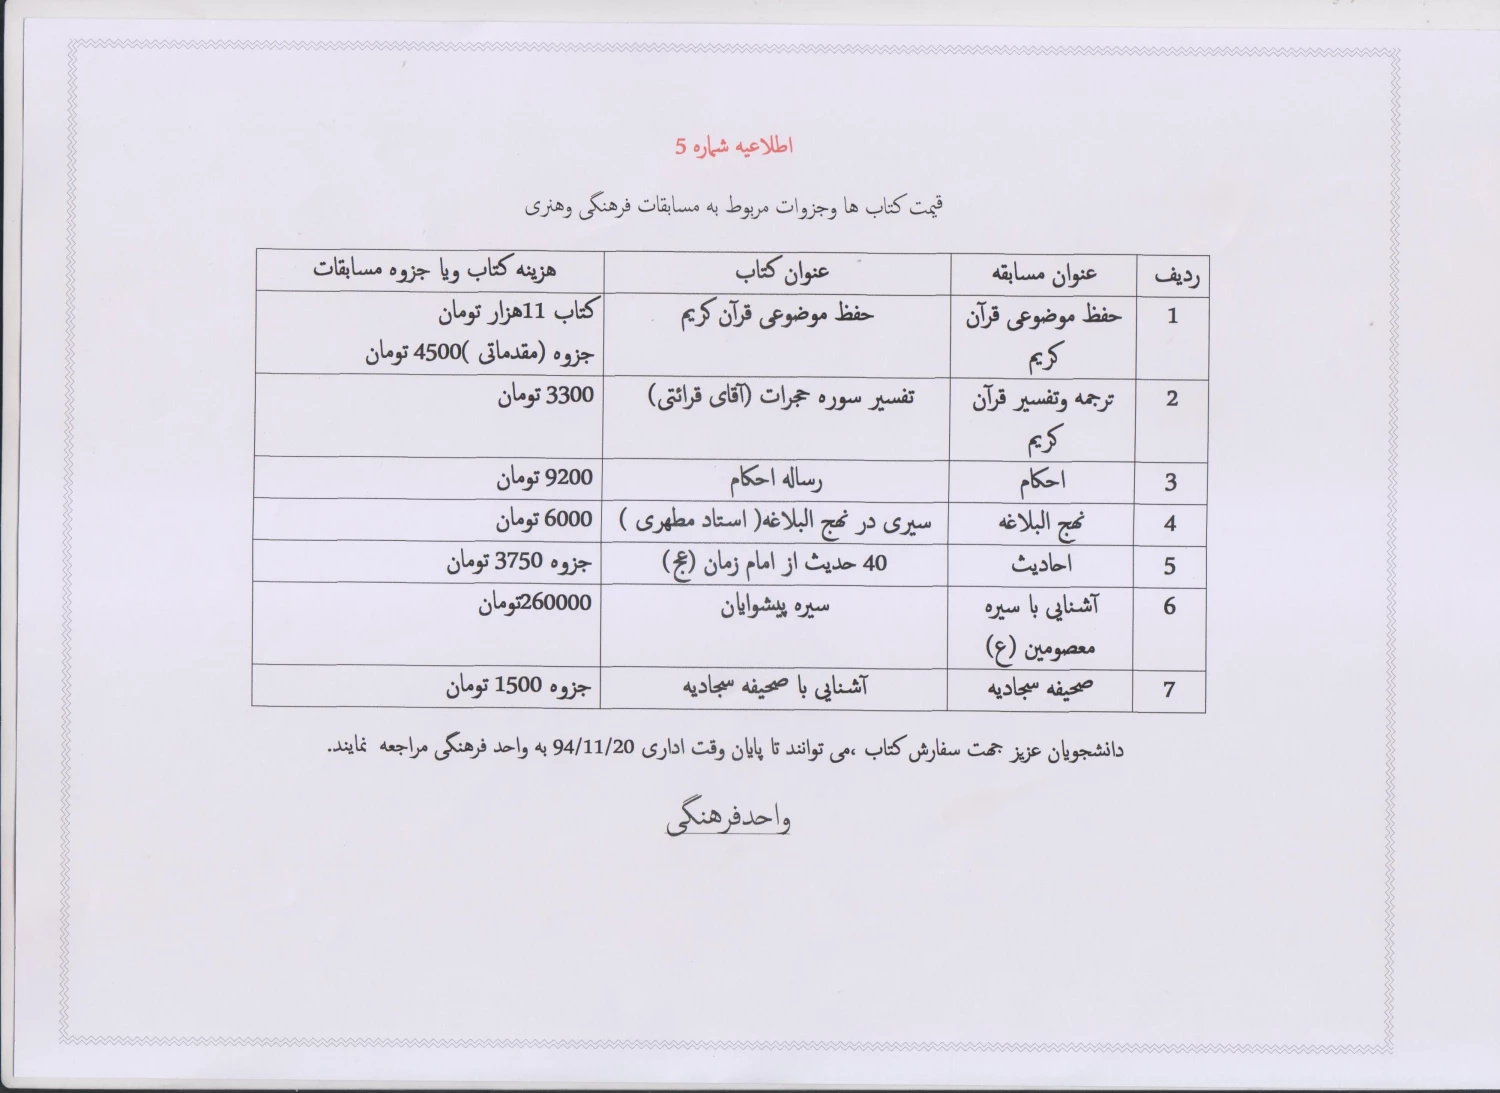 اطلاعیه شماره 5
قیمت کتاب ها وجزوات مربوط به مسابقات فرهنگی وهنری
ردیف عنوان مسابقه عنوان کتاب هزینه کتاب ویا جزوه مسابقات
1 حفظ موضوعی قرآن کریم حفظ موضوعی قرآن کریم کتاب 11هزار تومان
جزوه (مقدماتی )4500 تومان
2 ترجمه وتفسیر قرآن کریم تفسیر سوره حجرات (آقای قرائتی) 3300 تومان
3 احکام رساله احکام 9200 تومان
4 نهج البلاغه سیری در نهج البلاغه( استاد مطهری ) 6000 تومان
5 احادیث 40 حدیث از امام زمان (عج) جزوه 3750 تومان
6 آشنایی با سیره معصومین (ع) سیره پیشوایان 260000تومان
7 صحیفه سجادیه آشنایی با صحیفه سجادیه جزوه 1500 تومان
دانشجویان عزیز جهت سفارش کتاب ،می توانند تا پایان وقت اداری 94/11/20 به واحد فرهنگی مراجعه نمایند.
واحدفرهنگی